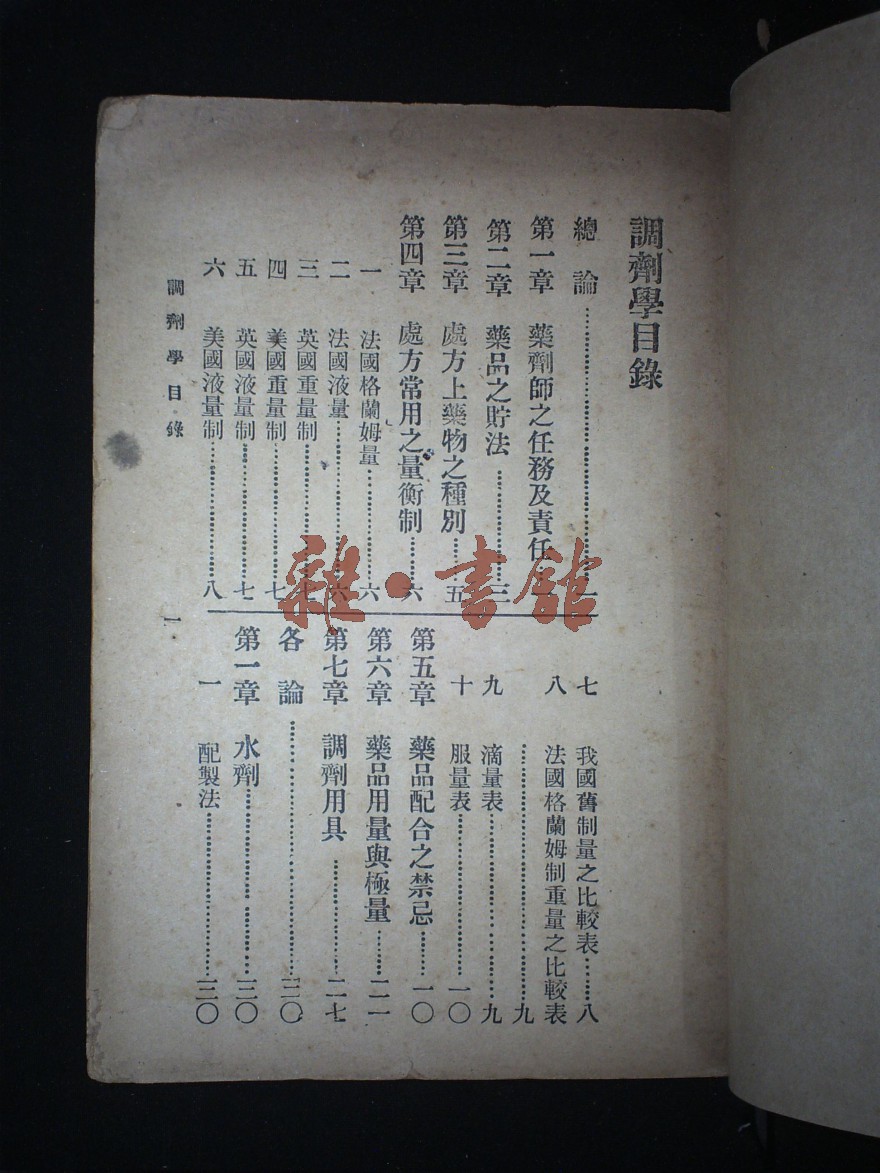 調劑學目錄
總論……一
第一章 藥劑師之任務及責任
第二章 藥品之貯法……三
第三章 處方上藥物之種別……五
第四章 處方常用之量衡制……六
一 法國格蘭姆量……六
二 法國液量……六
三 英國重量制……七
四 美國重量制……七
五 英國液量制……七
六 美國液量制……八
七 我國舊制量之比較表……八
八 法國格蘭姆制重量之比較表
……九
九 滴量表……九
十 服量表……一〇
第五章 藥品配合之禁忌……一〇
第六章 藥品用量與極量……二一
第七章 調劑用具……二七
各論……三〇
第一章 水劑……三〇
一 配製法……三〇
調劑學目錄
一
雜·書館